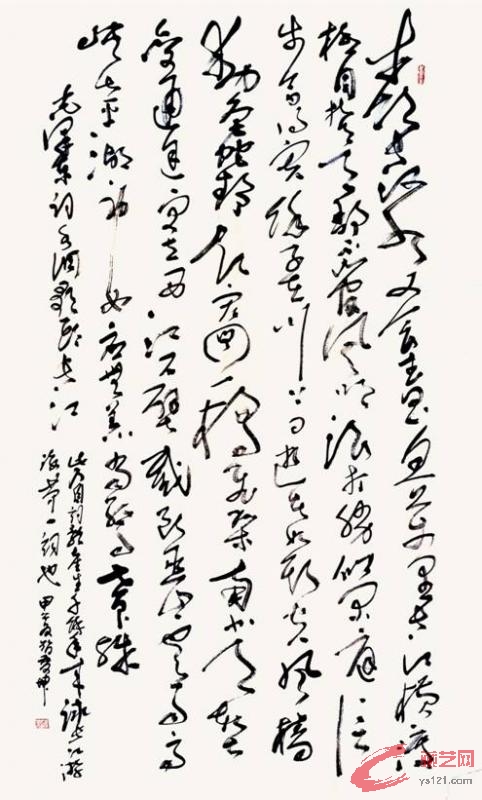 才饮长沙水又食武昌鱼万里长江横渡
极目楚天舒不管风吹浪打胜似闲庭信
步今日得宽馀子在川上曰逝者如斯夫风樯
動龟蛇静起宏图一桥飞架南北天堑
变通途更立西江石壁截断巫山云雨高
峡出平湖神女应無恙当惊世界殊
毛泽东词水调歌头长江
词也
艺网
ys121.com